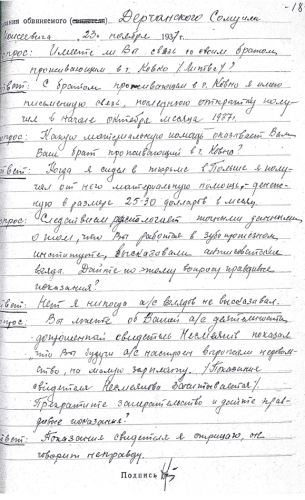 -18
зания обвиняемого (свидетеля) Дерчанского Самуила
Моисеевича 23 ноября 1937г.
прос: Имеете ли Вы связь со своим братом,
проживающим в г. Ковно /Литва/?
вет: С братом проживающим в г. Ковно я имею
письменную связь, последнюю открытку полу-
чил в начале октября месяца 1937г.
прос: Какую материальную помощь оказывает Вам
Ваш брат проживающий в г. Ковно?
вет: Когда я сидел в тюрьме в Польше я полу-
чал от него материальную помощь, денеж-
ную в размере 25-30 долларов в месяц.
прос: Следствием располагает точными данными,
о том, что Вы работая в зубопротезном
институте, высказывали антисоветские
взгляды. Дайте по этому вопросу правдивые
показания?
вет: Нет я никогда а/с взглядов не высказывал.
прос: Вы лжете об Вашей а/с деятельности,
допрошенный свидетель Несмеянов показал
что Вы будучи а/с настроен выражали недоволь-
ство, на малую зарплату. /Показание
свидетеля Несмеянова зачитывается/
Прекратите запирательство и дайте прав-
дивое показание?
вет: Показания свидетеля я отрицаю, он
говорит неправду.
Подпись